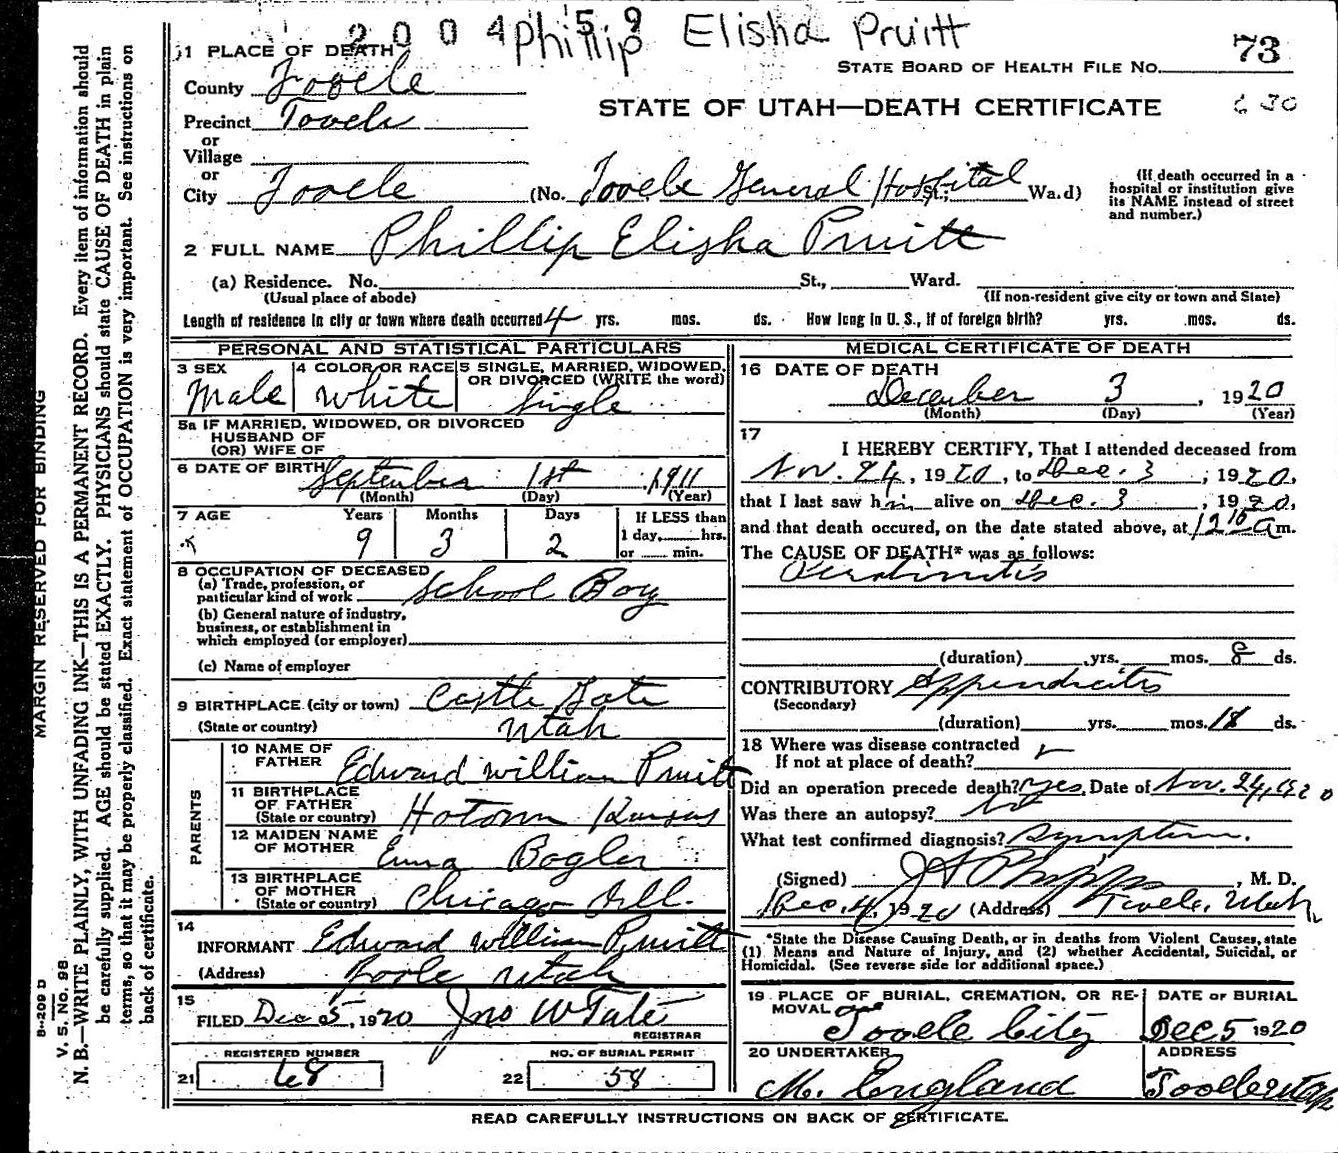 2004159
Phillip Elisha Pruitt
1 PLACE OF DEATH
STATE BOARD OF HEALTH FILE NO. 73
County Tooele
STATE OF UTAH—DEATH CERTIFICATE
630
Precinct Tooele
or
Village
or
City Tooele (No. Tooele General Hospital St.; Ward)
(If death occurred in a hospital or institution give its NAME instead of street and number.)
2 FULL NAME Phillip Elisha Pruitt
(a) Residence. No. St., Ward.
(Usual place of abode) (If non-resident give city or town and State)
Length of residence in city or town where death occurred 4 yrs. mos. ds. How long in U. S., if of foreign birth? yrs. mos. ds.
PERSONAL AND STATISTICAL PARTICULARS
3 SEX Male
4 COLOR OR RACE White
5 SINGLE, MARRIED, WIDOWED, OR DIVORCED (WRITE the word) Single
5a IF MARRIED, WIDOWED, OR DIVORCED
HUSBAND OF
(OR) WIFE OF
6 DATE OF BIRTH September 1st 1911
(Month) (Day) (Year)
7 AGE Years Months Days If LESS than
9 3 2 1 day, hrs.
or min.
8 OCCUPATION OF DECEASED
(a) Trade, profession, or
particular kind of work School Boy
(b) General nature of industry,
business, or establishment in
which employed (or employer)
(c) Name of employer
9 BIRTHPLACE (city or town) Castle Gate
(State or country) Utah
PARENTS
10 NAME OF FATHER Edward William Pruitt
11 BIRTHPLACE OF FATHER
(State or country) Kansas
12 MAIDEN NAME OF MOTHER Emma Bogler
13 BIRTHPLACE OF MOTHER
(State or country) Chicago Ill.
14
INFORMANT Edward William Pruitt
(Address) Tooele Utah
15
FILED Dec 5, 1920 Jno W Tate
REGISTRAR
REGISTERED NUMBER NO. OF BURIAL PERMIT
21 68 22 58
MEDICAL CERTIFICATE OF DEATH
16 DATE OF DEATH
December 3, 1920
(Month) (Day) (Year)
17
I HEREBY CERTIFY, That I attended deceased from
Nov. 24, 1920, to Dec. 3, 1920,
that I last saw him alive on Dec. 3, 1920,
and that death occured, on the date stated above, at 12 10 am.
The CAUSE OF DEATH* was as follows:
Peritinitis
(duration) yrs. mos. 8 ds.
CONTRIBUTORY Appendicitis
(Secondary)
(duration) yrs. mos. 18 ds.
18 Where was disease contracted
If not at place of death?
Did an operation precede death? yes. Date of Nov. 24, 1920
Was there an autopsy? no
What test confirmed diagnosis? Symptom.
(Signed) J A Phipps, M. D.
Dec. 4, 1920 (Address) Tooele, Utah
*State the Disease Causing Death, or in deaths from Violent Causes, state
(1) Means and Nature of Injury, and (2) whether Accidental, Suicidal, or
Homicidal. (See reverse side for additional space.)
19 PLACE OF BURIAL, CREMATION, OR REMOVAL Tooele City
DATE OF BURIAL Dec 5 1920
20 UNDERTAKER M. England
ADDRESS Tooele Utah
READ CAREFULLY INSTRUCTIONS ON BACK OF CERTIFICATE.
MARGIN RESERVED FOR BINDING
N. B.—WRITE PLAINLY, WITH UNFADING INK—THIS IS A PERMANENT RECORD. Every item of information should
be carefully supplied. AGE should be stated EXACTLY. PHYSICIANS should state CAUSE OF DEATH in plain
terms, so that it may be properly classified. Exact statement of OCCUPATION is very important. See instructions on
back of certificate.
B-209 D
V. S. No. 98